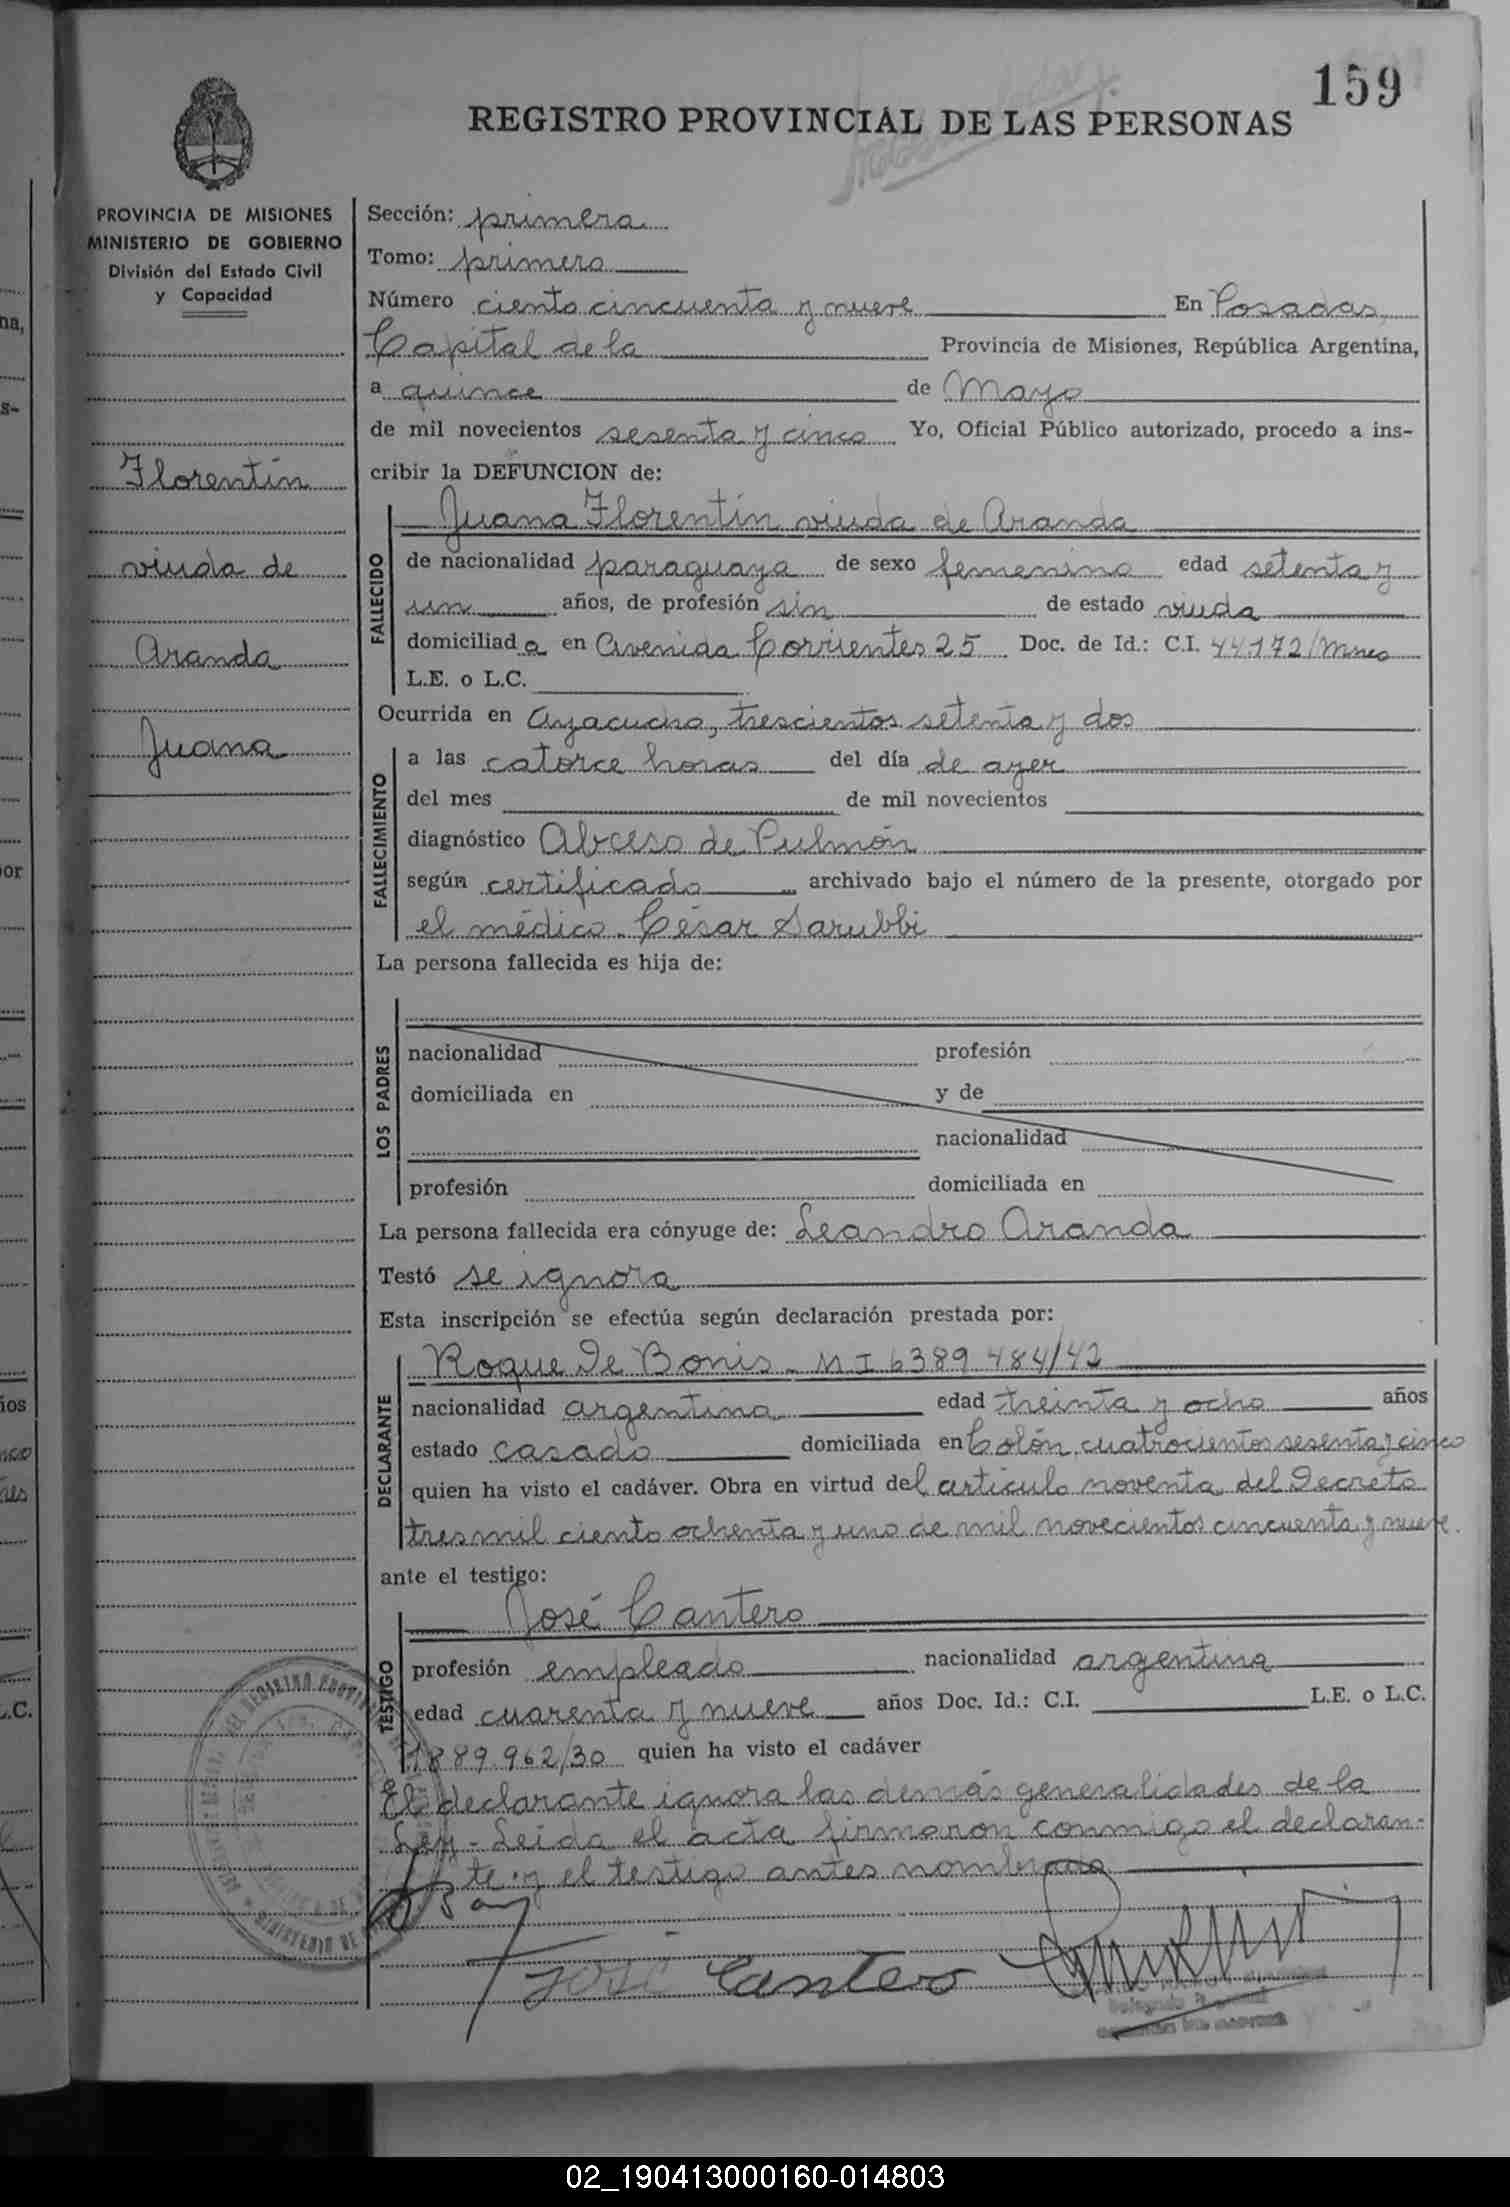 159
REGISTRO PROVINCIAL DE LAS PERSONAS
PROVINCIA DE MISIONES
MINISTERIO DE GOBIERNO
División del Estado Civil
y Capacidad
Florentín
viuda de
Aranda
Juana
Sección: primera
Tomo: primero
Número ciento cincuenta y nueve En Posadas,
Capital de la Provincia de Misiones, República Argentina,
a quince de Mayo
de mil novecientos sesenta y cinco Yo, Oficial Público autorizado, procedo a ins-
cribir la DEFUNCION de:
FALLECIDO
Juana Florentín viuda de Aranda
de nacionalidad paraguaya de sexo femenino edad setenta y
un años, de profesión sin de estado viuda
domiciliada en Avenida Corrientes 25 Doc. de Id.: C.I. 44.172/Mnes
L.E. o L.C.
Ocurrida en Ayacucho, trescientos setenta y dos
FALLECIMIENTO
a las catorce horas del día de ayer
del mes de mil novecientos
diagnóstico Abceso de Pulmón
según certificado archivado bajo el número de la presente, otorgado por
el médico César Sarubbi
La persona fallecida es hija de:
LOS PADRES
nacionalidad profesión
domiciliada en y de
nacionalidad
profesión domiciliada en
La persona fallecida era cónyuge de: Leandro Aranda
Testó se ignora
Esta inscripción se efectúa según declaración prestada por:
DECLARANTE
Roque De Bonis - M I 6389.484/42
nacionalidad argentina edad treinta y ocho años
estado casado domiciliada en Colón cuatrocientos sesenta y cinco
quien ha visto el cadáver. Obra en virtud del artículo noventa del Decreto
tres mil ciento ochenta y uno de mil novecientos cincuenta y nueve.
ante el testigo:
TESTIGO
José Cantero
profesión empleado nacionalidad argentina
edad cuarenta y nueve años Doc. Id.: C.I. L.E. o L.C.
1889.962/30 quien ha visto el cadáver
El declarante ignora las demás generalidades de la
Ley - Leida el acta firmaron conmigo el declaran-
te y el testigo antes nombrado
José Cantero
02_190413000160-014803